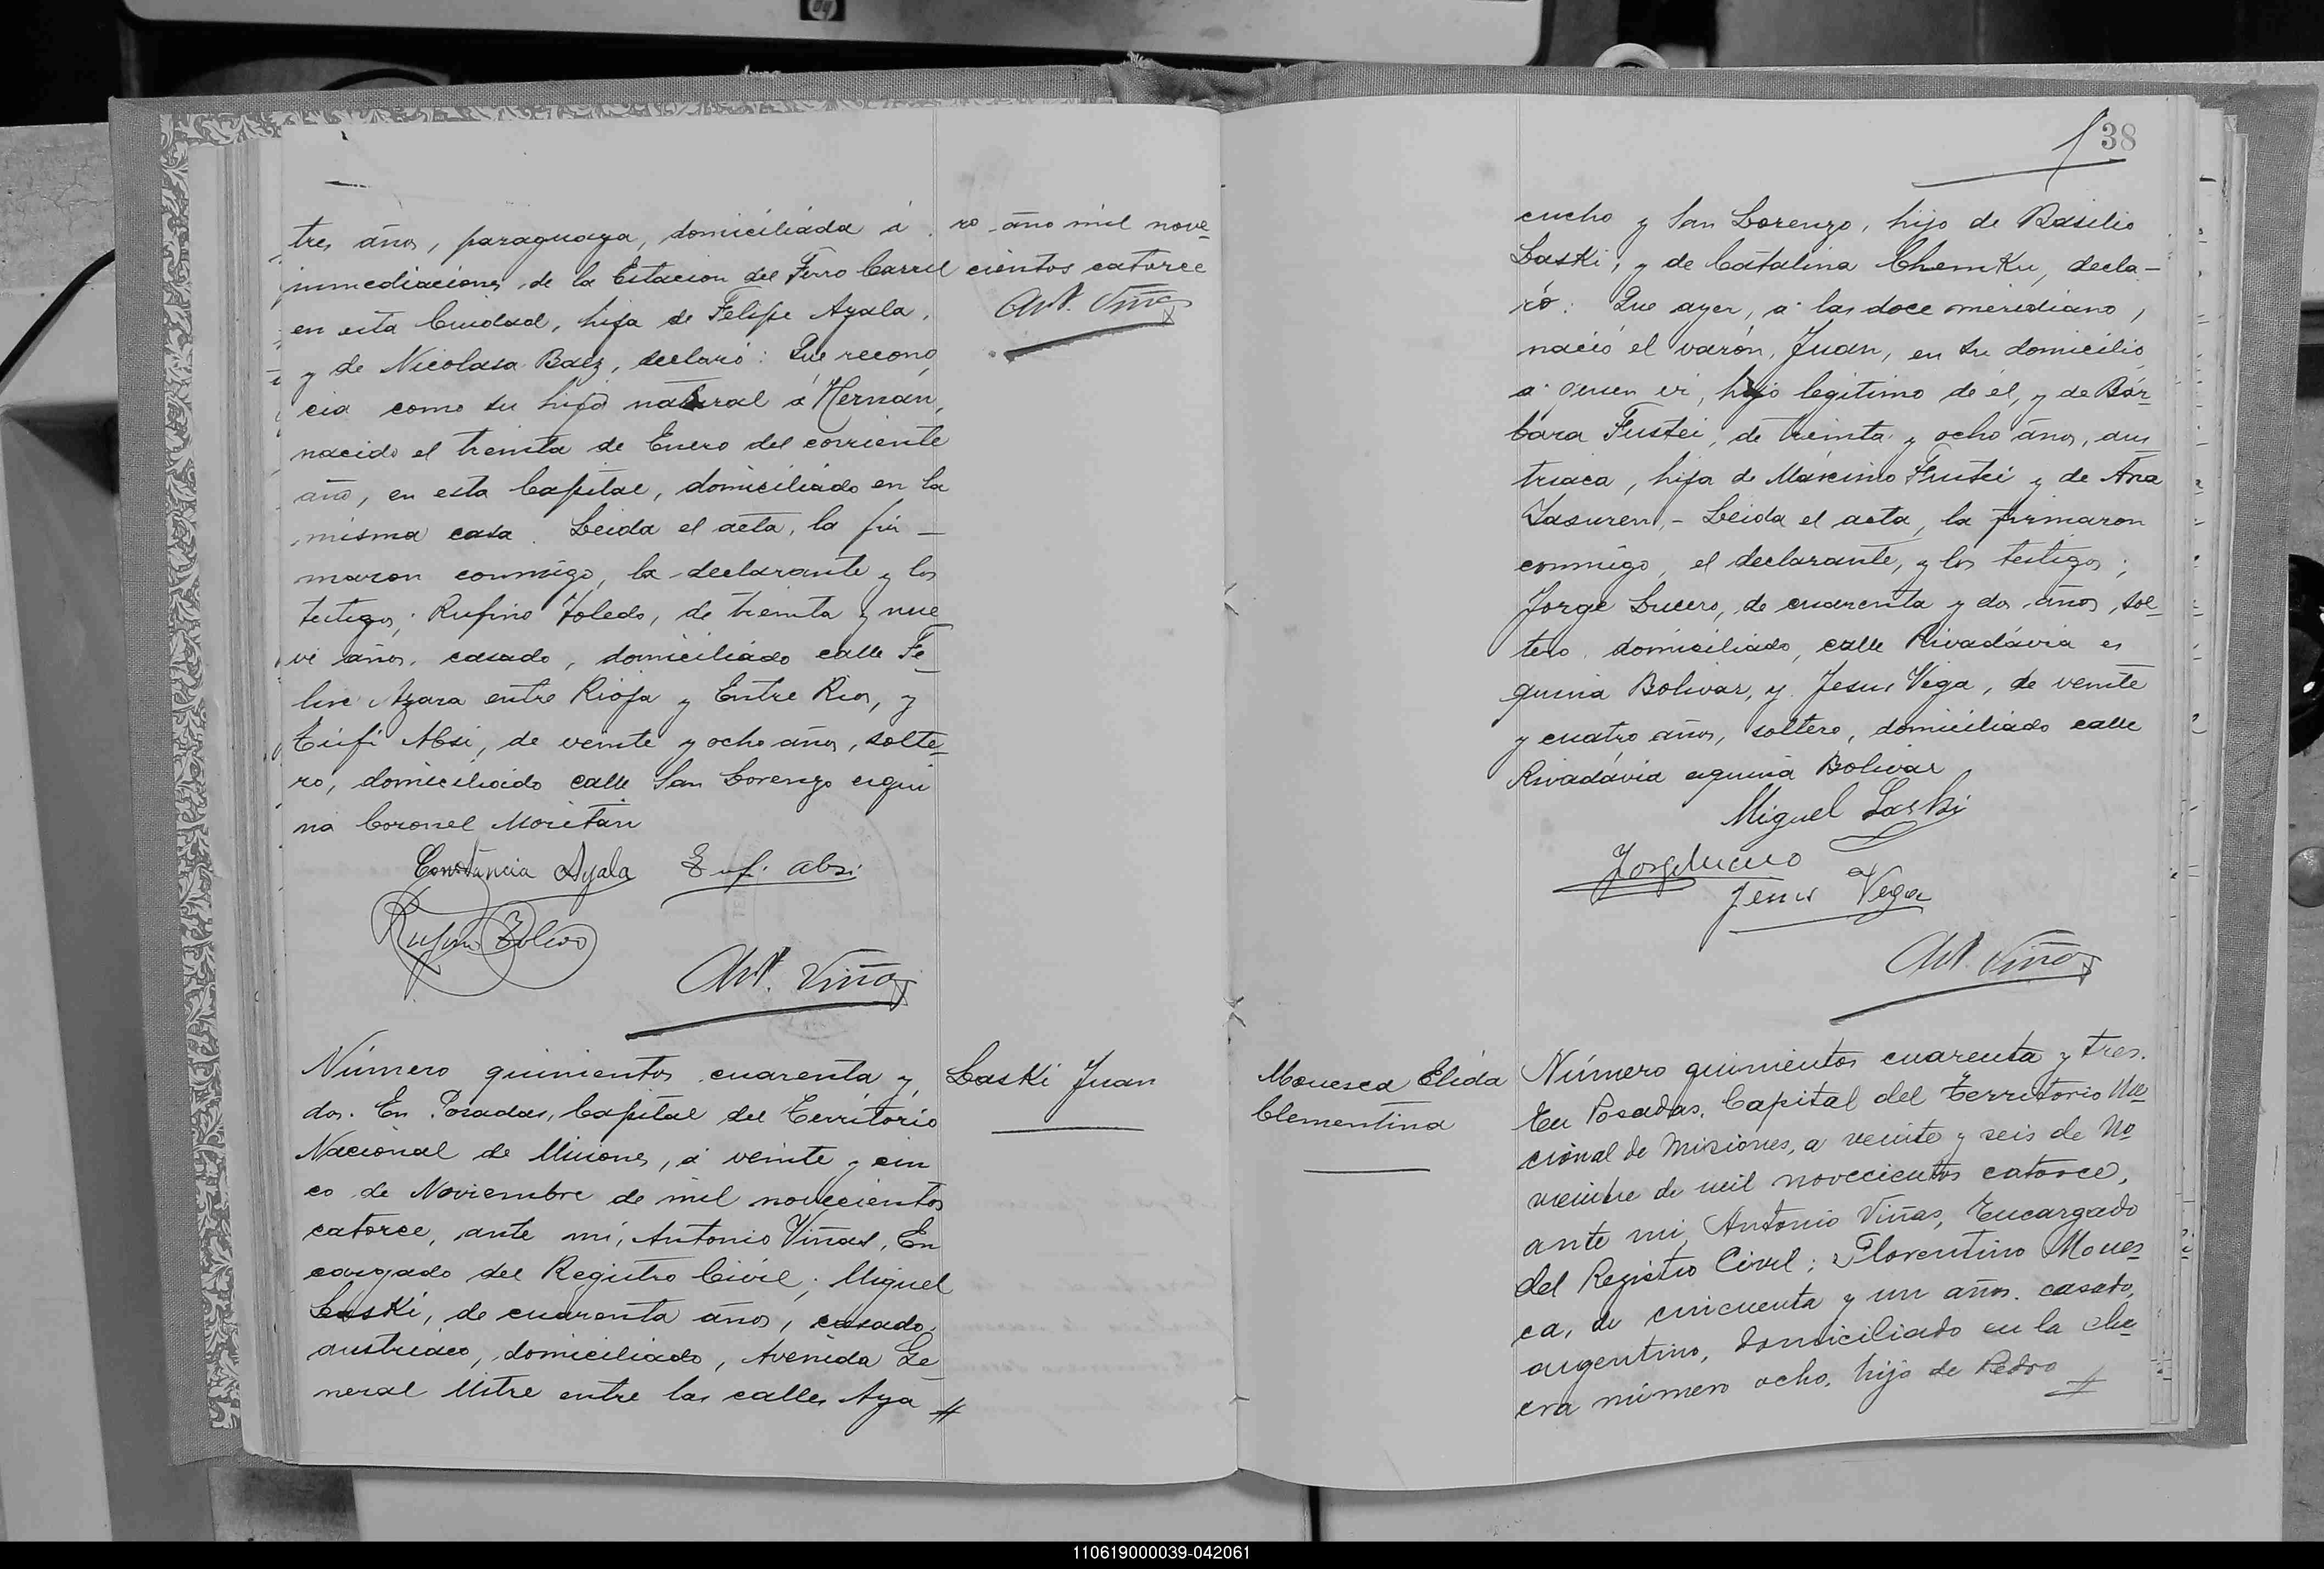 tres años, paraguaya, domiciliada á
inmediaciones de la Estacion del Ferro Carril
en esta Ciudad, hija de Felipe Ayala,
y de Nicolasa Baez, declaró: Que recono
cia como su hijo natural á Hernán,
nacido el treinta de Enero del corriente
año, en esta Capital, domiciliado en la
misma casa. Leida el acta, la fir-
maron conmigo, la declarante y los
testigos; Rufino Toledo, de treinta y nue
ve años, casado, domiciliado calle Fe-
lix Azara entre Rioja y Entre Rios, y
Tufi Absi, de veinte y ocho años, solte-
ro, domiciliado calle San Lorenzo esqui
na Coronel Moritán
ro año mil nove-
cientos catorce
Ant. Viñas
Constancia Ayala Tuf. Absi
Rufino Toledo
Ant. Viñas
Número quinientos cuarenta y
dos. En Posadas, Capital del Territorio
Nacional de Misiones, á veinte y cin
co de Noviembre de mil novecientos
catorce, ante mi, Antonio Viñas, En
cargado del Registro Civil; Miguel
Laski, de cuarenta años, casado,
austriaco, domiciliado, Avenida Ge-
neral Mitre entre las calles Aya #
Laski Juan
38
cucho y San Lorenzo, hijo de Basilio
Laski, y de Catalina ChemKu, decla-
ró: Que ayer, a las doce meridiano,
nació el varón, Juan, en su domicilio
a quien es, hijo legitimo de él, y de Bár-
bara Fustei, de treinta y ocho años, aus
triaca, hija de Máximo Frustei y de Ana
Jasuren,- Leida el acta, la firmaron
conmigo, el declarante, y los testigos;
Jorge Lucero, de cuarenta y dos años, sol-
tero, domiciliado, calle Rivadávia es
quina Bolivar, y Jesus Vega, de veinte
y cuatro años, soltero, domiciliado calle
Rivadávia esquina Bolivar
Miguel Laski
Jorge Lucero
Jesus Vega
Ant. Viñas
Mouesca Elida
Clementina
Número quinientos cuarenta y tres.
En Posadas, Capital del Territorio Na-
cional de Misiones, a veinte y seis de No
viembre de mil novecientos catorce,
ante mi, Antonio Viñas, Encargado
del Registro Civil; Florentino Moues-
ca, de cincuenta y un años, casado,
argentino, domiciliado en la cha-
cra número ocho, hijo de Pedro #
110619000039-042061